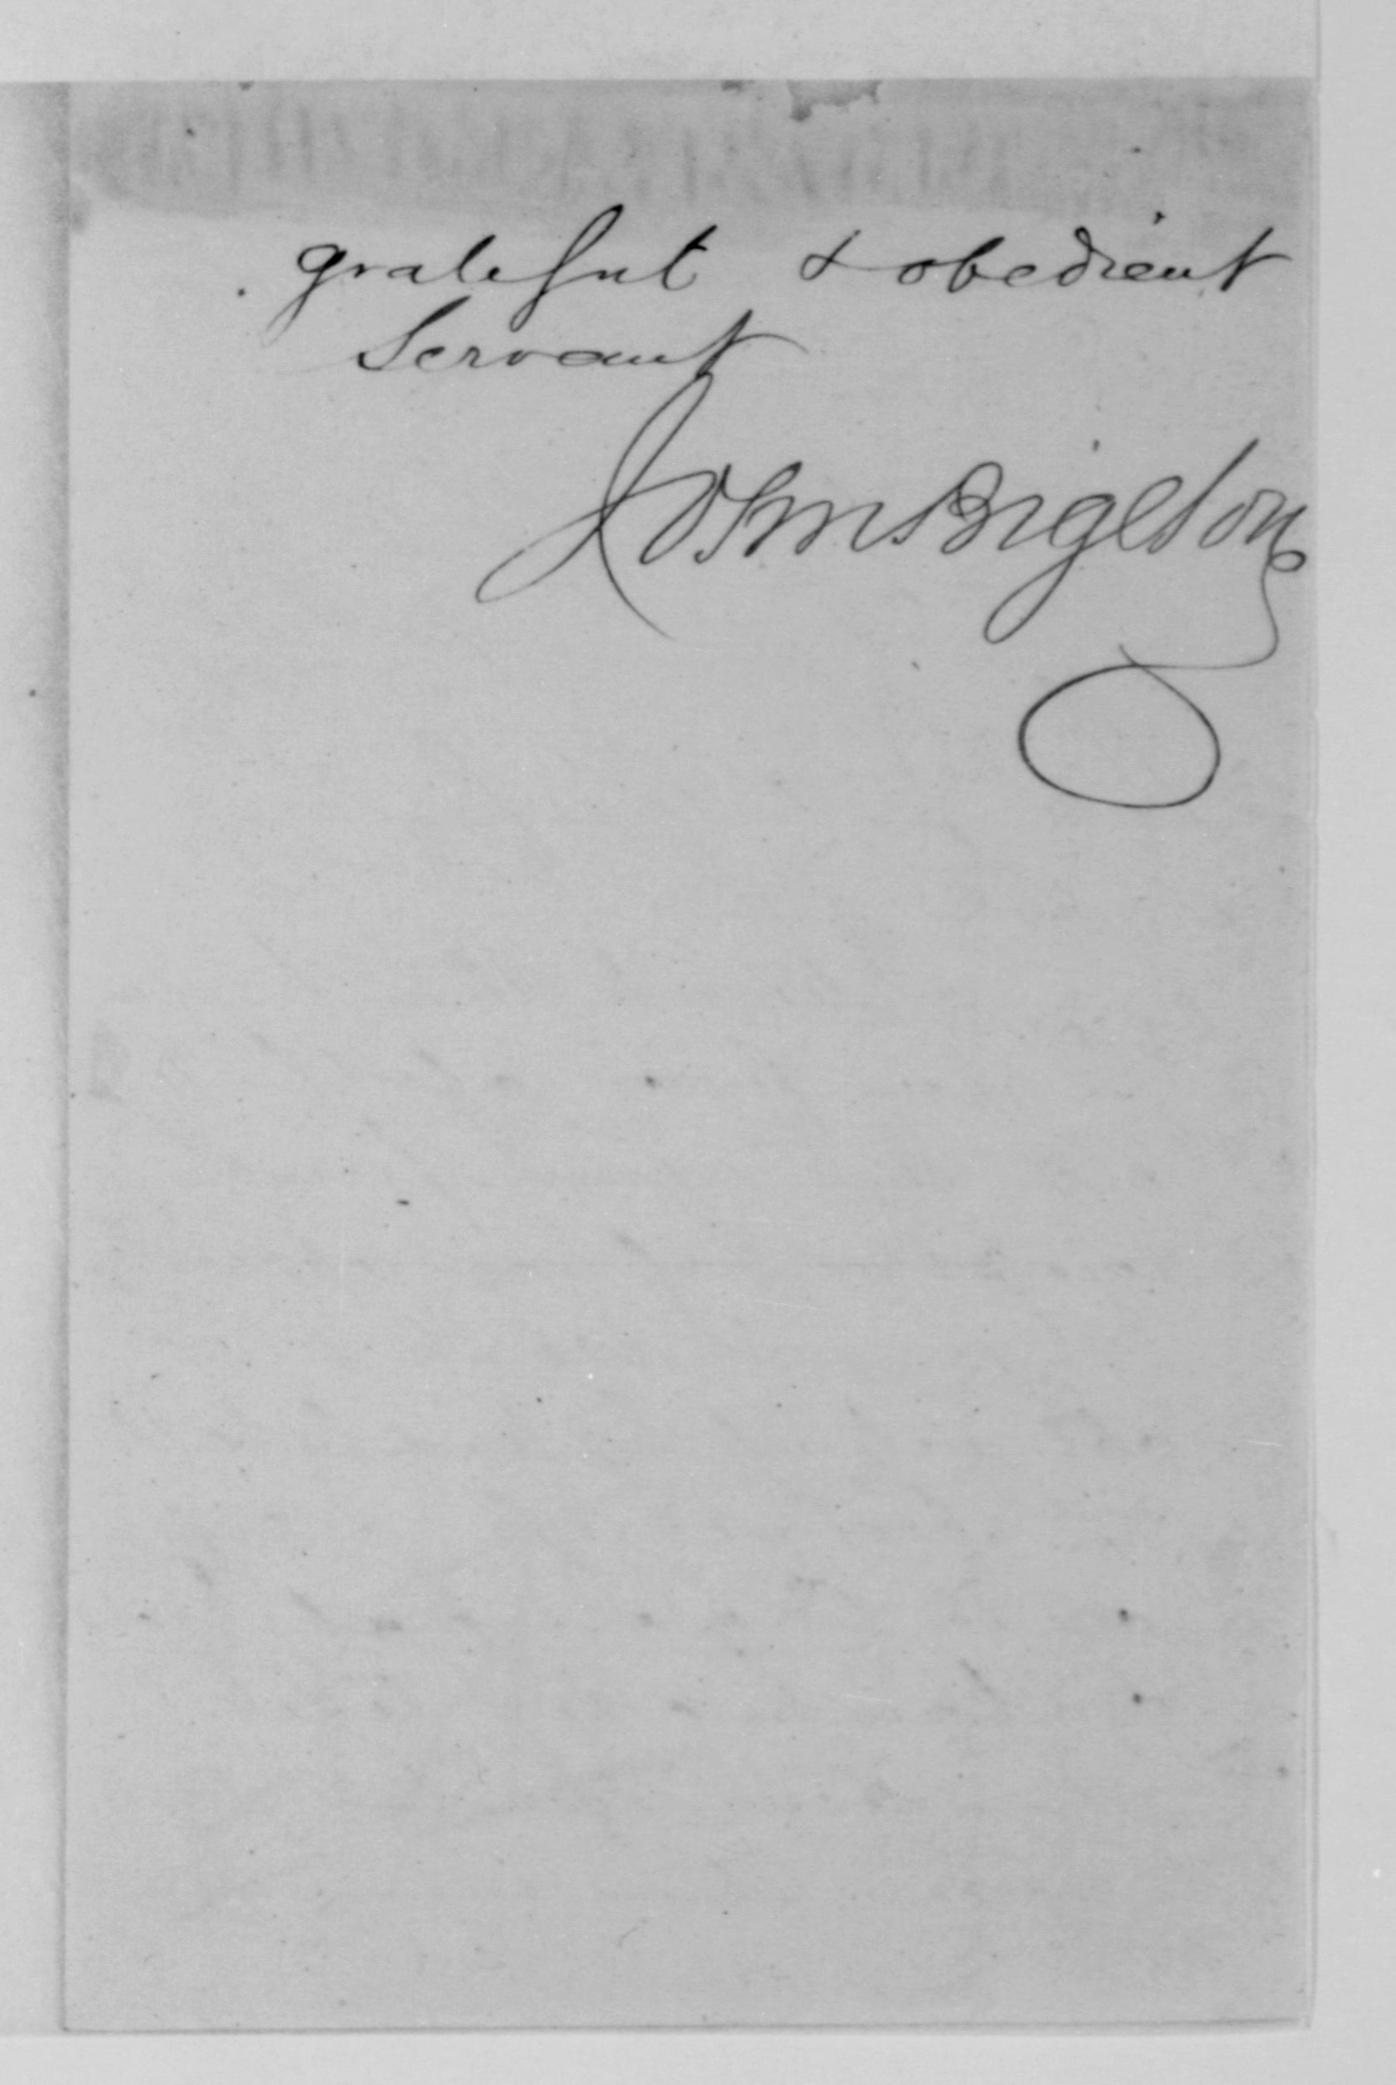 grateful & obedient
Servant
John Bigelow